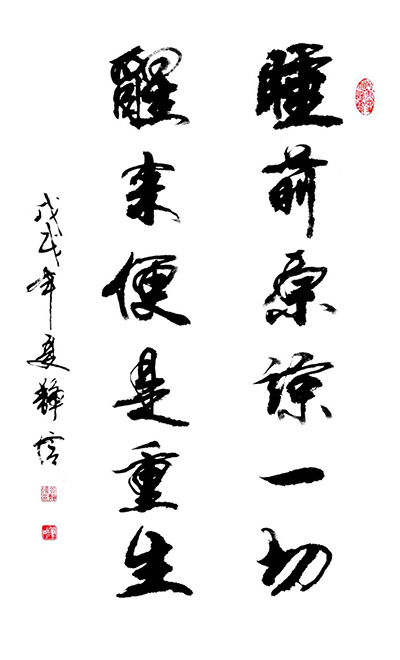 睡前原諒一切
醒来便是重生
戊戌年夏